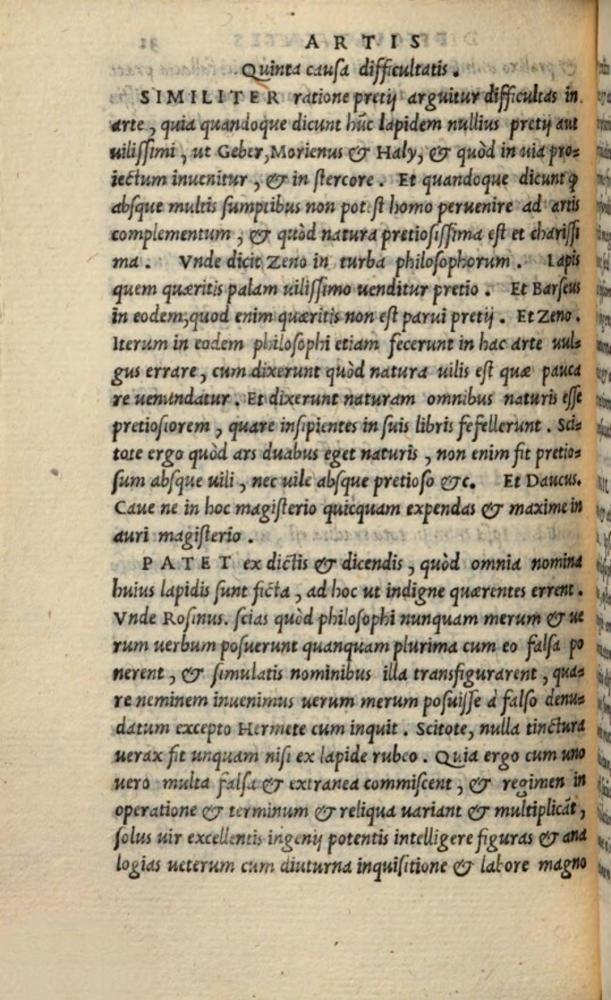 ARTIS
Quinta causa difficultatis.
SIMILITER ratione pretij arguitur difficultas in
arte, quia quandoque dicunt hũc lapidem nullius pretij aut
uilissimi, ut Geber, Morienus & Haly, & quòd in uia pro=
iectum inuenitur, & in stercore. Et quandoque dicunt ꝙ
absque multis sumptibus non potest homo peruenire ad artis
complementum, & quòd natura pretiosissima est et charissi
ma. Vnde dicit Zeno in turba philosophorum. Lapis
quem quæritis palam uilissimo uenditur pretio. Et Barseus
in eodem, quod enim quæritis non est parui pretij. Et Zeno.
Iterum in eodem philosophi etiam fecerunt in hac arte uul=
gus errare, cum dixerunt quòd natura uilis est quæ pauca
re uenundatur. Et dixerunt naturam omnibus naturis esse
pretiosiorem, quare insipientes in suis libris fefellerunt. Sci=
tote ergo quòd ars duabus eget naturis, non enim fit pretio=
sum absque uili, nec uile absque pretioso &c. Et Daucus.
Caue ne in hoc magisterio quicquam expendas & maxime in
auri magisterio.
PATET ex dictis & dicendis, quòd omnia nomina
huius lapidis sunt ficta, ad hoc ut indigne quærentes errent.
Vnde Rosinus. scias quòd philosophi nunquam merum & ue
rum uerbum posuerunt quanquam plurima cum eo falsa po
nerent, & simulatis nominibus illa transfigurarent, qua=
re neminem inuenimus uerum merum posuisse à falso denu=
datum excepto Hermete cum inquit. Scitote, nulla tinctura
uerax fit unquam nisi ex lapide rubeo. Quia ergo cum uno
uero multa falsa & extranea commiscent, & regimen in
operatione & terminum & reliqua uariant & multiplicãt,
solus uir excellentis ingenij potentis intelligere figuras & ana
logias ueterum cum diuturna inquisitione & labore magno